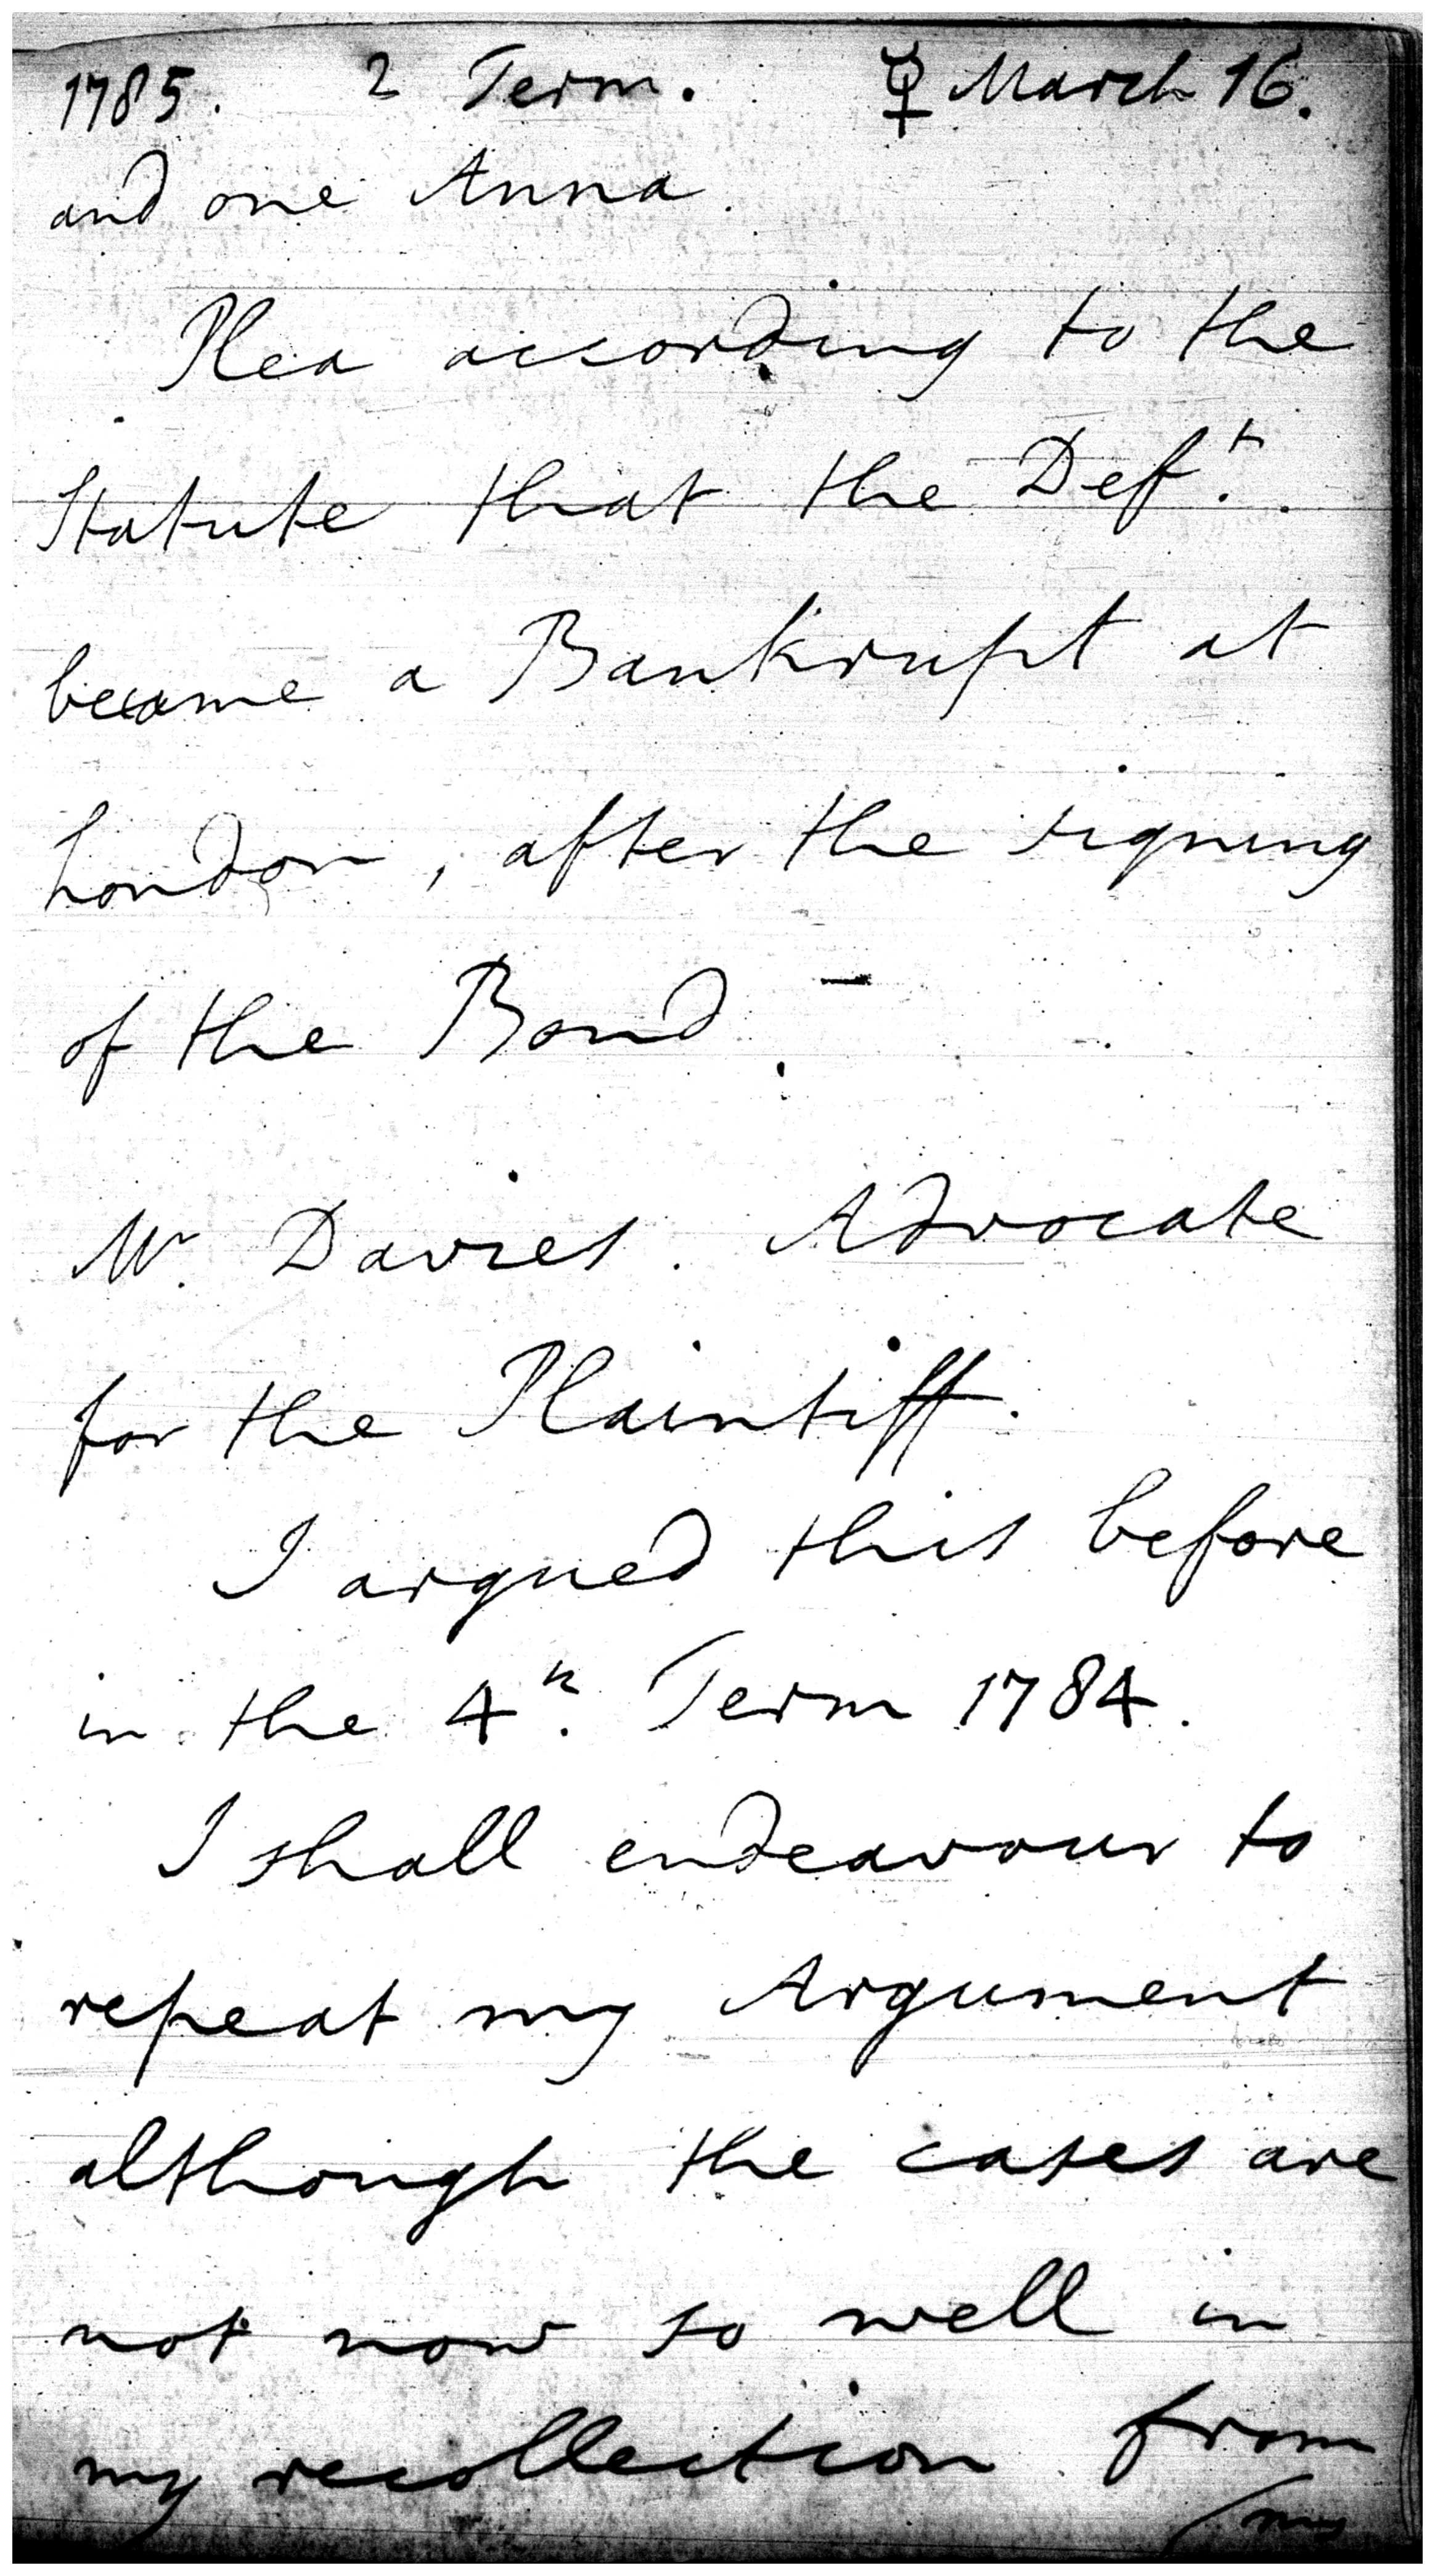 1785. 2 Term. ☿ March 16.
and one Anna.
Plea according to the
Statute that the Def.t
became a Bankrupt at
London, after the signing
of the Bond. –
Mr. Davies. Advocate
for the Plaintiff.
I argued this before
in the 4.h Term 1784.
I shall endeavour to
repeat my Argument
although the cases are
not now so well in
my recollection from
my